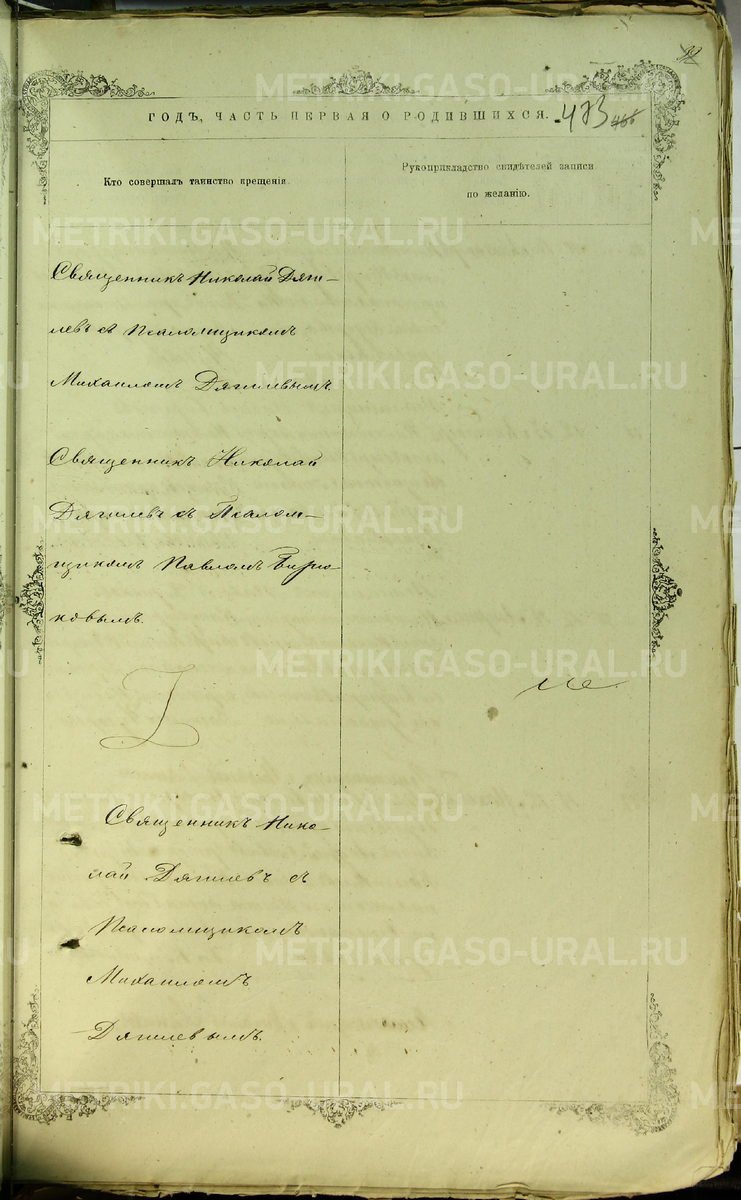 ГОДЪ, ЧАСТЬ ПЕРВАЯ О РОДИВШИХСЯ. 473
Кто совершалъ таинство крещенія.
Рукоприкладство свидѣтелей записи
по желанію.
Священникъ Николай Дяги-
левъ съ Псаломщикомъ
Михаиломъ Дягилевымъ.
Священникъ Николай
Дягилевъ съ Псалом-
щикомъ Павломъ Бирю-
ковымъ.
Священникъ Нико-
лай Дягилевъ съ
Псаломщикомъ
Михаиломъ
Дягилевымъ.
METRIKI.GASO-URAL.RU